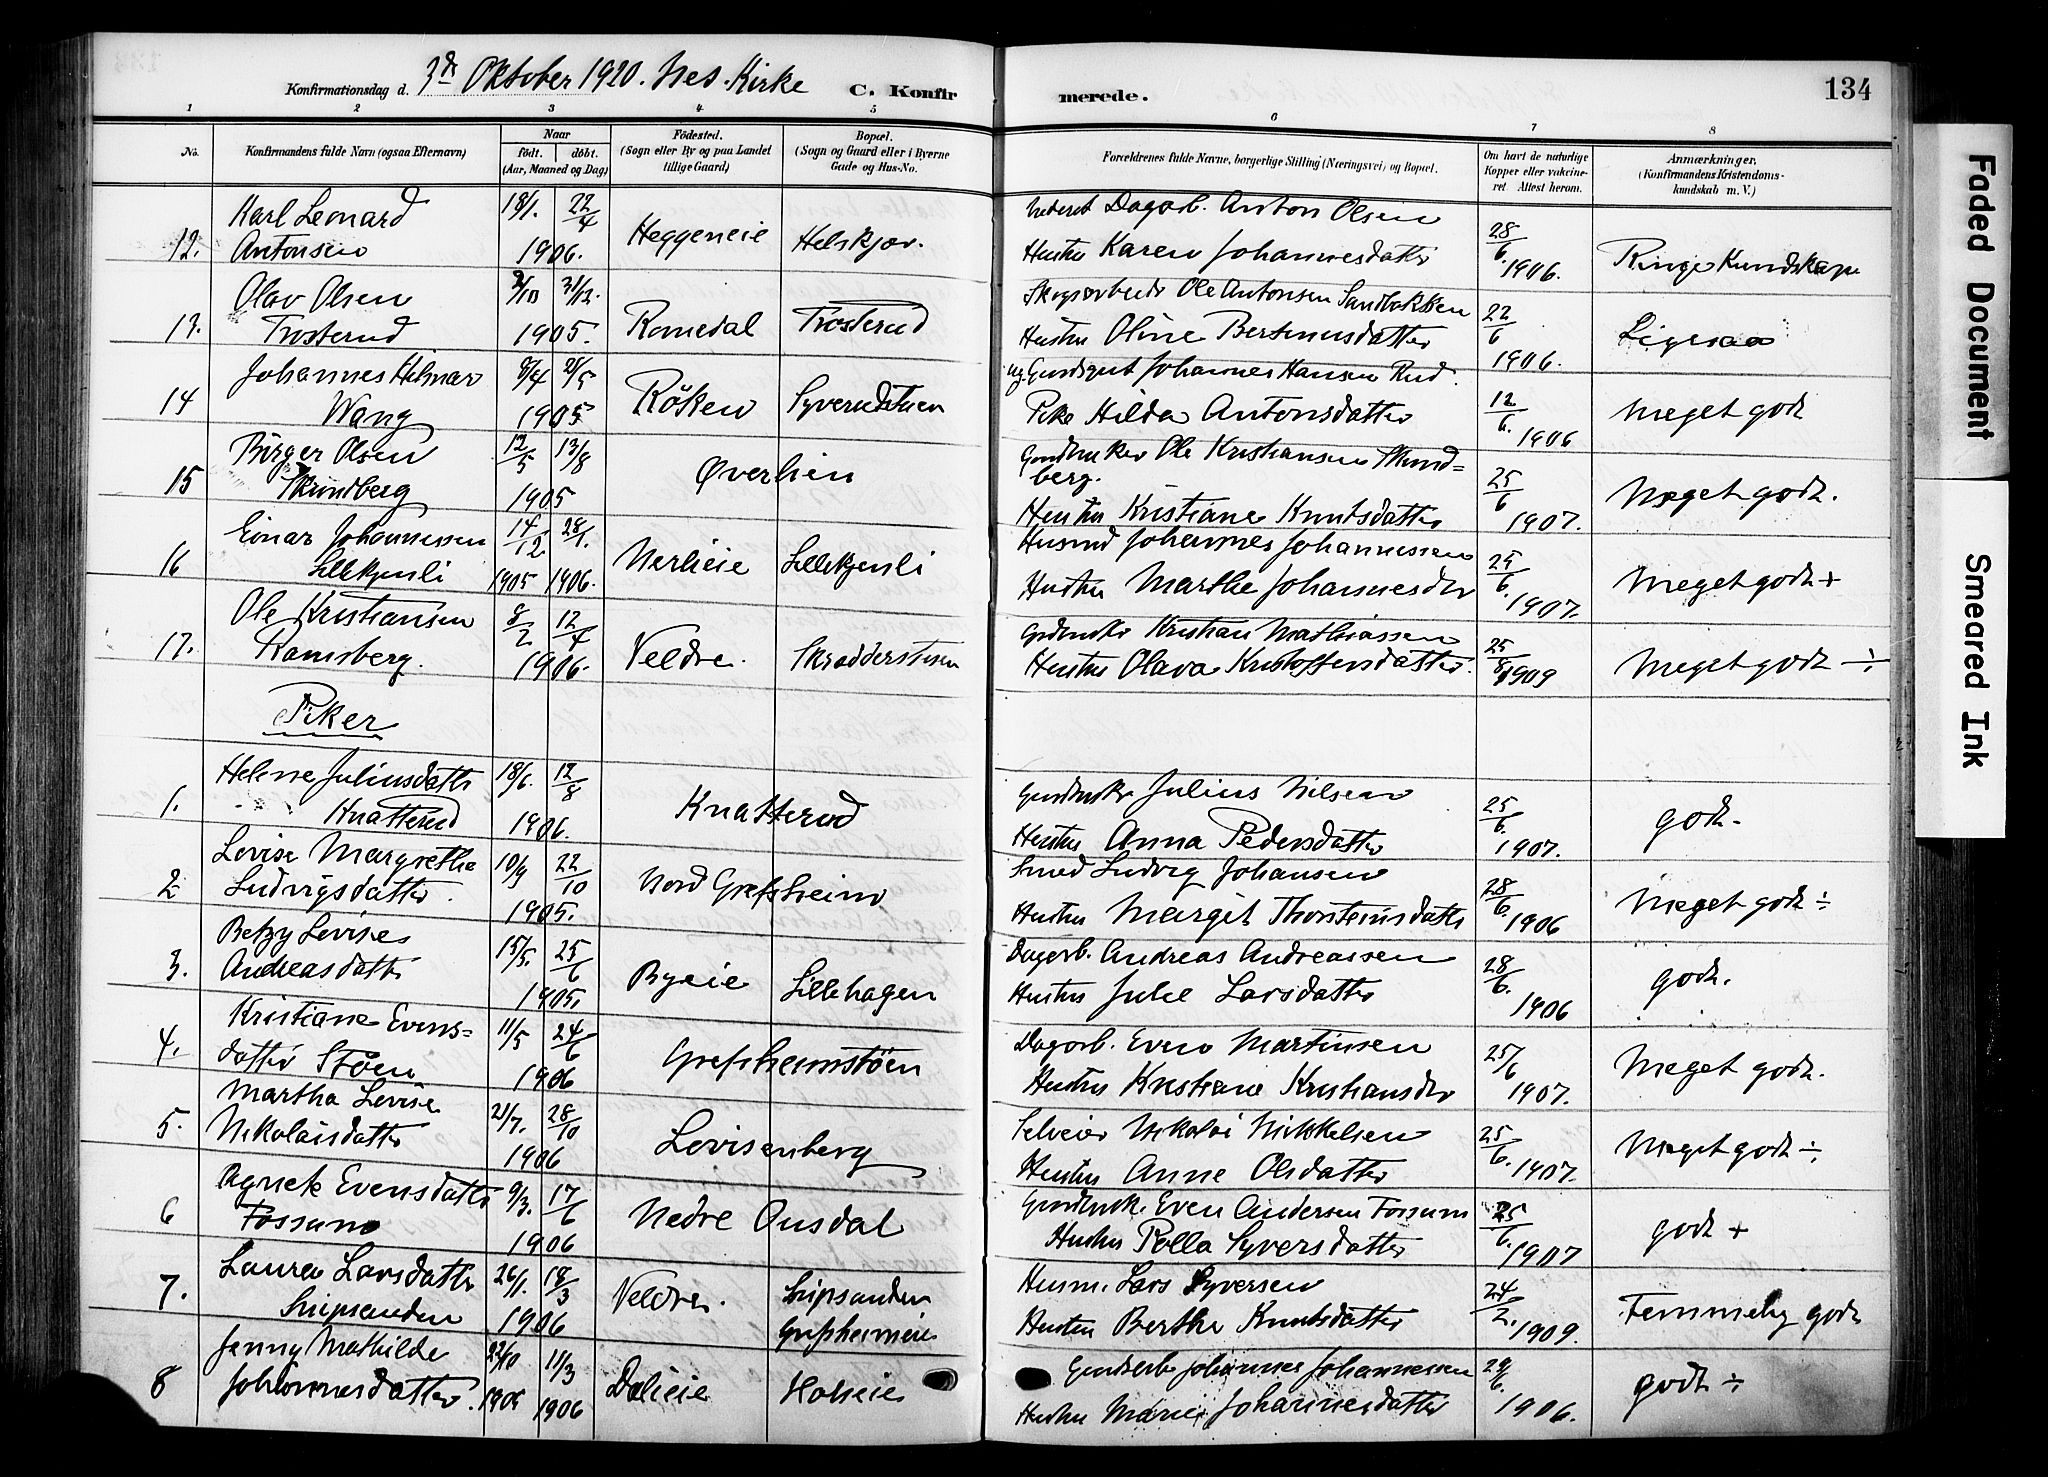 Konfirmationsdag d. 3de Oktober 1920. Nes Kirke C. Konfirmerede. 134
1 2 3 4 5 6 7 8
No. Konfirmandens fulde Navn (ogsaa Efternavn) Naar født. døbt. (Aar, Maaned og Dag) Fødested. (Sogn eller By og paa Landet tillige Gaard) Bopæl. (Sogn og Gaard eller i Byerne Gade og Hus-No. Forældrenes fulde Navne, borgerlige Stilling (Næringsvei) og Bopæl. Om havt de naturlige Kopper eller vakcineret. Attest herom. Anmærkninger. (Konfirmandens Kristendomskundskab m. V.)
Karl Leonard 18/1. 22/4 Dagarb. Anton Olsen
12. Antonsen 1906. Heggeneie Helskjær. Hustru Karen Johannesdatter 28/6. 1906. Ringe Kundskaper
Olav Olsen 2/10 31/12. Skogsarbeider Ole Antonsen Sandbakken
13. Trosterud 1905. Romedal Trosterud Hustru Oline Bertinusdatter 22/6 1906. Ligesaa
Johannes Helmar 8/4 21/5 ug. Johannes Hansen Rud.
14 Wang 1905 Røken Syverudstuen Pike Hilda Antonsdatter 12/6. 1906 Meget godt
Birger Olsen 12/5 13/8 Gardbruker Ole Kristiansen Skundberg.
15 Skundberg 1905 Øverlien Hustru Kristiane Knutsdatter 25/6 1907. Meget godt.
Einar Johannessen 14/12 28/1. Husmd Johannes Johannessen
16 Lillekjenli 1905 1906. Nerlieie Lillekjenli Hustru Marthe Johannesdtr 25/6. 1907. Meget godt +
Ole Kristiansen 8/2 12/4 Grdbruker Kristian Mathiassen
17. Ramsberg. 1906. Veldre. Skradderstuen Hustru Olava Kristoffersdatter. 25/8 1909 Meget godt ÷
Piker
Helene Juliusdatter 18/6. 12/8 Gardbruker Julius Nilsen
1. Knatterud 1906. Knatterud Hustru Anna Pedersdatter 25/6. 1907. godt.
Lovise Margrethe 10/9 22/10 Smed Ludvig Johansen
2 Ludvigsdatter. 1905. Nord Grefsheim Hustru Margit Thorsteinsdatter 28/6. 1906 Meget godt ÷
Betzy Lovise 15/5. 25/6 Dagarb. Andreas Andreassen
3. Andreasdatter 1905. Byeie Lillehagen Hustru Julie Larsdatter 28/6. 1906 godt.
Kristiane Evens- 11/5 24/6 Dagarb. Even Martinsen
4. datter Støen 1906 Grefsheimstøen Hustru Kristiane Kristiansdtr 25/6 1907. Meget godt.
Martha Lovise 21/7. 28/10 Selveier Nikolai Mikkelsen
5. Nikolaisdatter 1906 Lovisenberg Hustru Anne Olsdatter 25/6. 1907. Meget godt ÷
Agnete Evensdatter 9/3. 17/6 Gardbruk. Even Andersen Fossum
6 Fossum 1906 Nedre Ousdal Hustru Polla Syversdatter 25/6. 1907 godt +
Laura Larsdatter 26/1. 18/3 Husm. Lars Syversen
7. Snipsanden 1906 Veldre. Snipsanden Grefsheimeie Hustru Berthe Knutsdatter 24/2. 1909. Temmelig godt
Jenny Mathilde 22/10 11/3 Gardsarb. Johannes Johannessen
8 Johannesdatter. 1905 1906 Dalieie Holseie Hustru Marie Johannesdatter 29/6. 1906. godt ÷
Faded Document
Smeared Ink